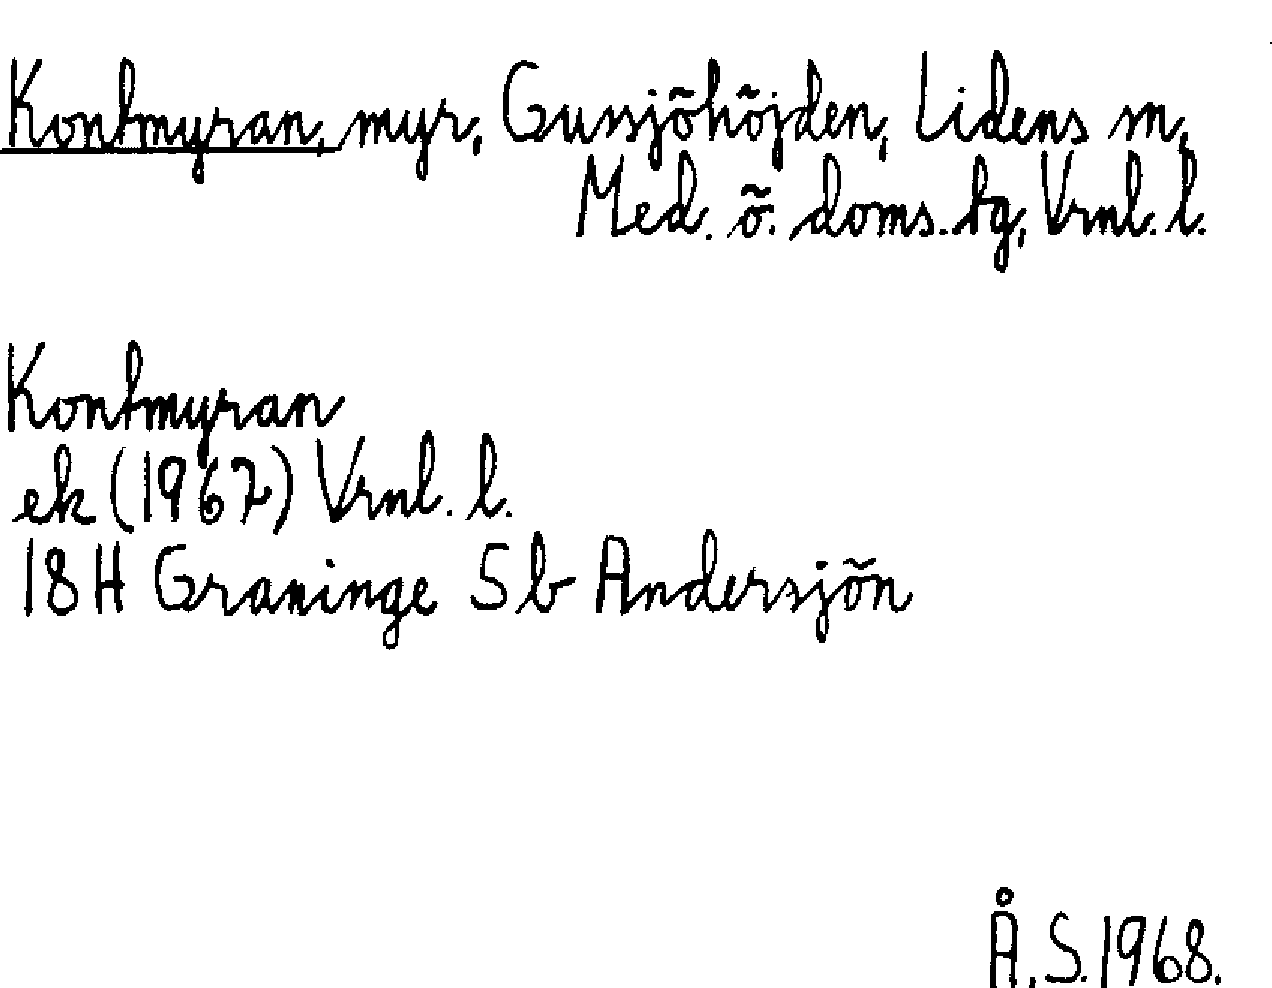 Kontmyran, myr, Gussjöhöjden, Lidens sn,
Med. ö. doms.tg, Vrnl. l.
Kontmyran
ek (1967) Vrnl. l.
18H Graninge 5b Andersjön
Å.S.1968.